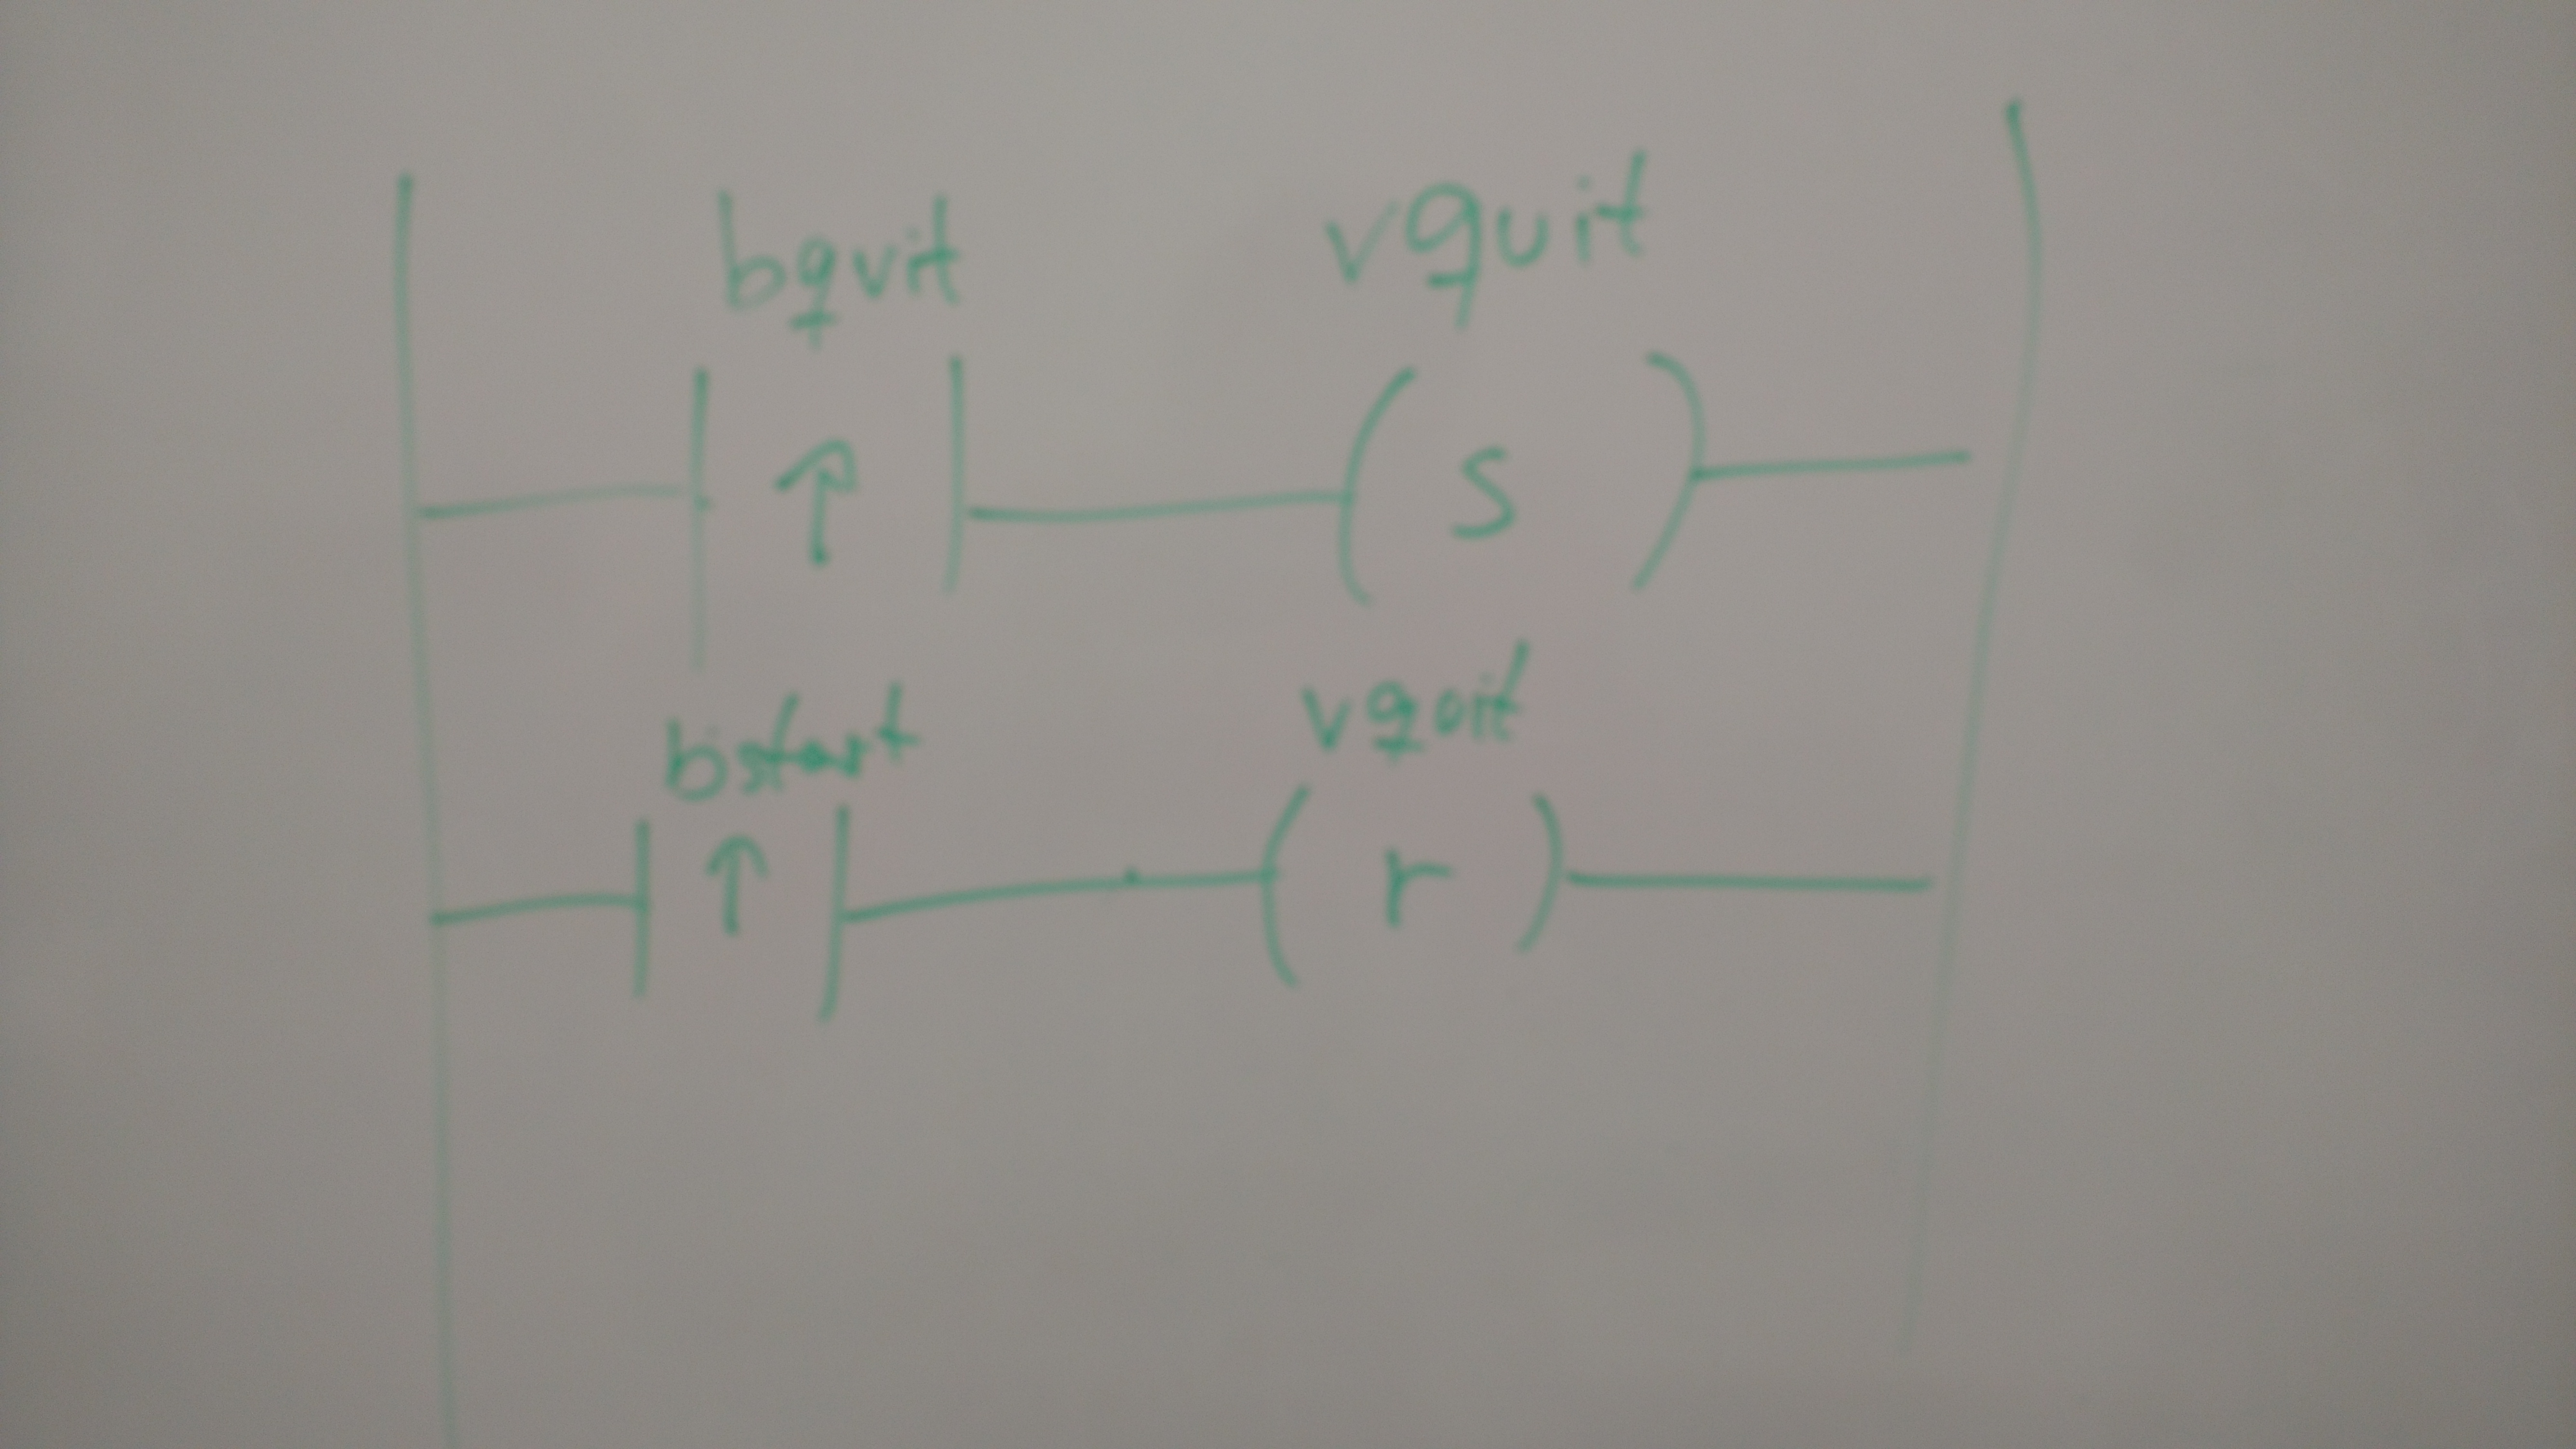 bqvit vquit
↑ s
bstart vqoit
↑ r